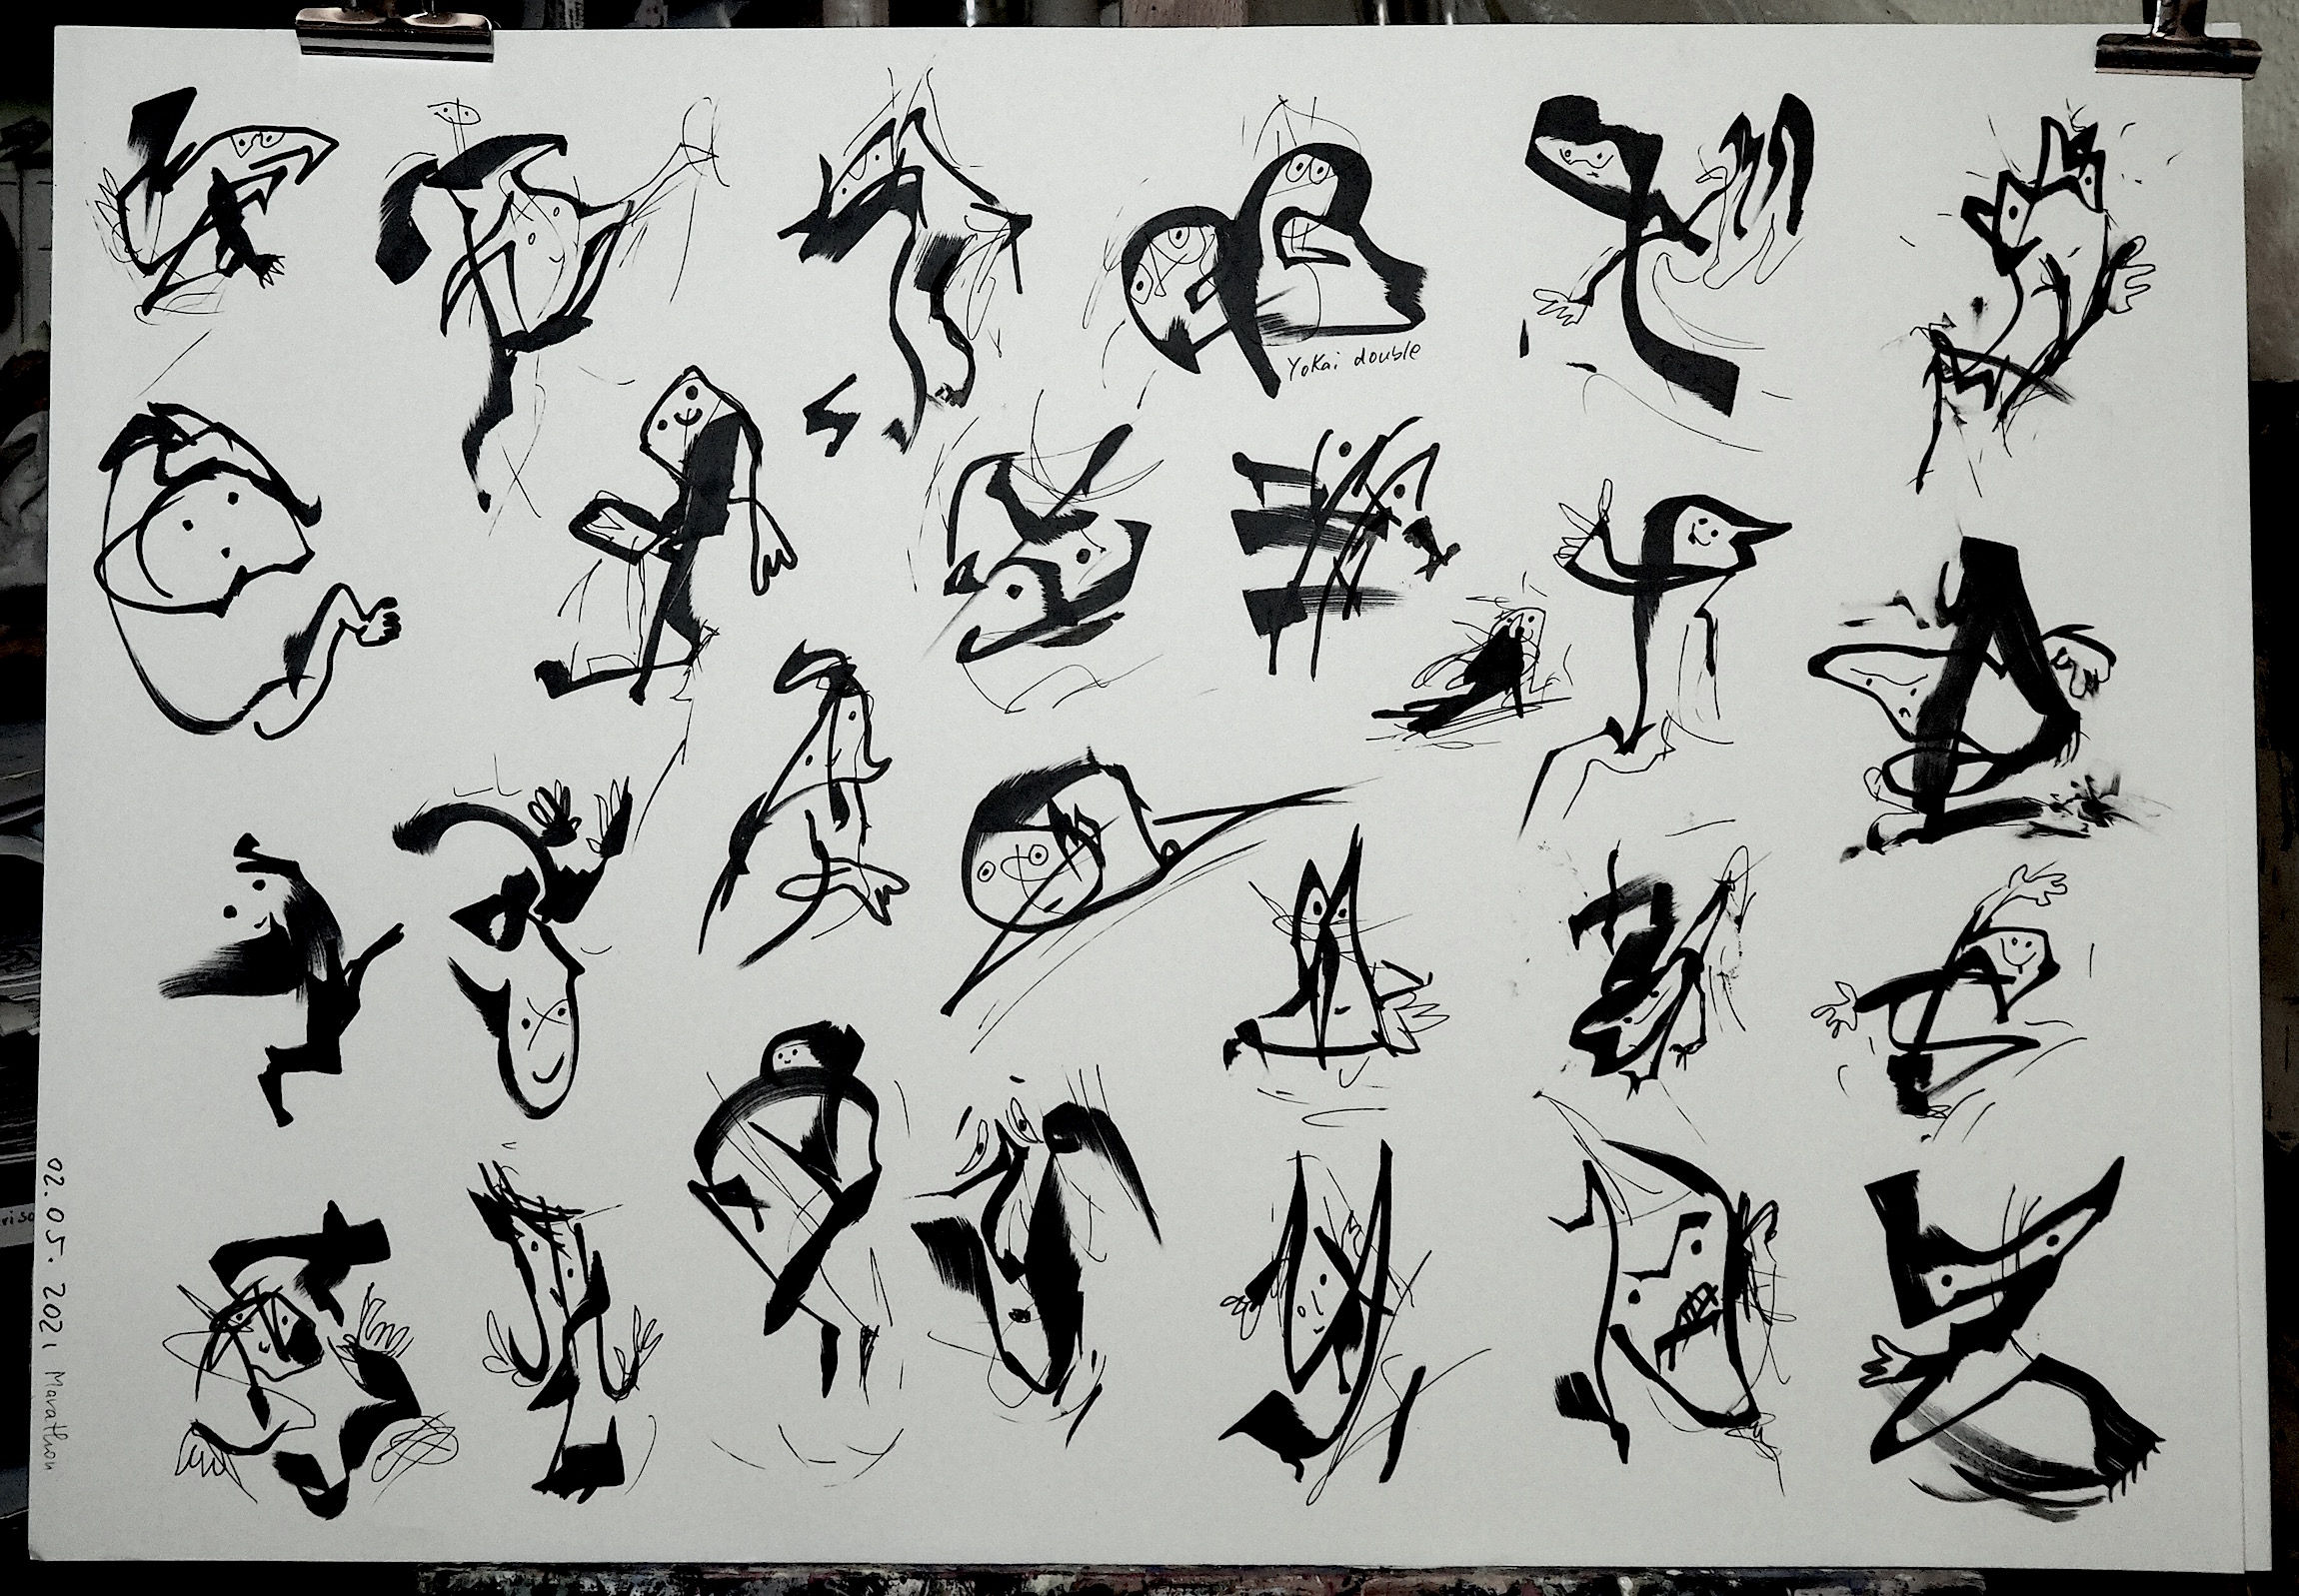 Yokai double
02.05.2021 Marathon